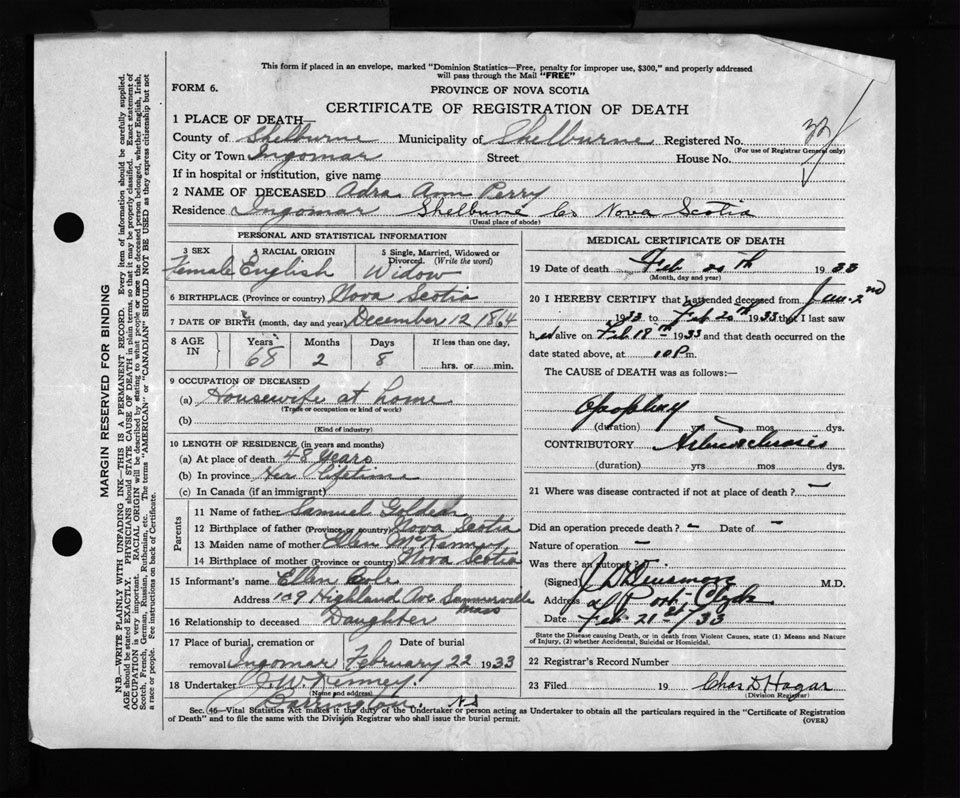 This form if placed in an envelope, marked "Dominion Statistics—Free, penalty for improper use, $300," and properly addressed
will pass through the Mail "FREE"
FORM 6.
PROVINCE OF NOVA SCOTIA
CERTIFICATE OF REGISTRATION OF DEATH
1 PLACE OF DEATH—
County of Shelburne Municipality of Shelburne Registered No.
(For use of Registrar General only)
City or Town Ingomar Street House No.
If in hospital or institution, give name
2 NAME OF DECEASED Adra Ann Perry
Residence Ingomar Shelburne Co Nova Scotia
(Usual place of abode)
PERSONAL AND STATISTICAL INFORMATION
3 SEX 4 RACIAL ORIGIN 5 Single, Married, Widowed or
Divorced. (Write the word)
Female English Widow
6 BIRTHPLACE (Province or country) Nova Scotia
7 DATE OF BIRTH (month, day and year) December 12 1864
8 AGE IN Years Months Days If less than one day,
68 2 8 hrs. or min.
9 OCCUPATION OF DECEASED
(a) Housewife at home
(Trade or occupation or kind of work)
(b)
(Kind of industry)
10 LENGTH OF RESIDENCE (in years and months)
(a) At place of death 48 Years
(b) In province Her Lifetime
(c) In Canada (if an immigrant)
Parents
11 Name of father Samuel
12 Birthplace of father (Province or country) Nova Scotia
13 Maiden name of mother Ellen McKenney
14 Birthplace of mother (Province or country) Nova Scotia
15 Informant's name Ellen Cole
Address 109 Highland Ave Sommerville
Mass
16 Relationship to deceased Daughter
17 Place of burial, cremation or Date of burial
removal Ingomar February 22 1933
18 Undertaker J. W. Kenney
(Name and address)
Barrington. N S
MEDICAL CERTIFICATE OF DEATH
19 Date of death Feb 20th 1933
(Month, day and year)
20 I HEREBY CERTIFY that I attended deceased from Jan. 2nd
1933 to Feb 20th 1933 that I last saw
h er alive on Feb 18th 1933 and that death occurred on the
date stated above, at 10 P m.
The CAUSE of DEATH was as follows:—
(duration) yrs mos dys.
CONTRIBUTORY
(duration) yrs mos dys.
21 Where was disease contracted if not at place of death? —
Did an operation precede death? — Date of —
Nature of operation —
Was there an autopsy?
(Signed) M.D.
Address Port Clyde
Date Feb. 21st/33
State the Disease causing Death, or in death from Violent Causes, state (1) Means and Nature
of Injury, (2) whether Accidental, Suicidal or Homicidal.
22 Registrar's Record Number
23 Filed 19 Chas D Hagar
(Division Registrar)
Sec. 46—Vital Statistics Act makes it the duty of the Undertaker or person acting as Undertaker to obtain all the particulars required in the "Certificate of Registration
of Death" and to file the same with the Division Registrar who shall issue the burial permit.
(OVER)
MARGIN RESERVED FOR BINDING
N.B.—WRITE PLAINLY WITH UNFADING INK—THIS IS A PERMANENT RECORD. Every item of information should be carefully supplied.
AGE should be stated EXACTLY. PHYSICIANS should STATE CAUSE OF DEATH in plain terms, so that it may be properly classified. Exact statement of
OCCUPATION is very important. RACIAL ORIGIN will be described by stating to what people or race the deceased person belonged, whether English, Irish,
Scotch, French, German, Russian, Ruthenian, etc. The terms "AMERICAN" or "CANADIAN" SHOULD NOT BE USED as they express citizenship but not
a race or people. See instructions on back of Certificate.